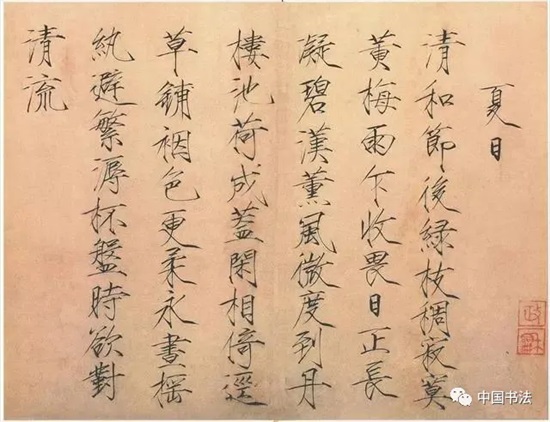 夏日
清和節後綠枝稠寂莫
黄梅雨乍收畏日正長
凝碧漢薰風微度到丹
樓池荷成蓋閑相倚逕
草鋪裀色更柔永晝摇
紈避繁溽杯盤時欲對
清流
中国书法